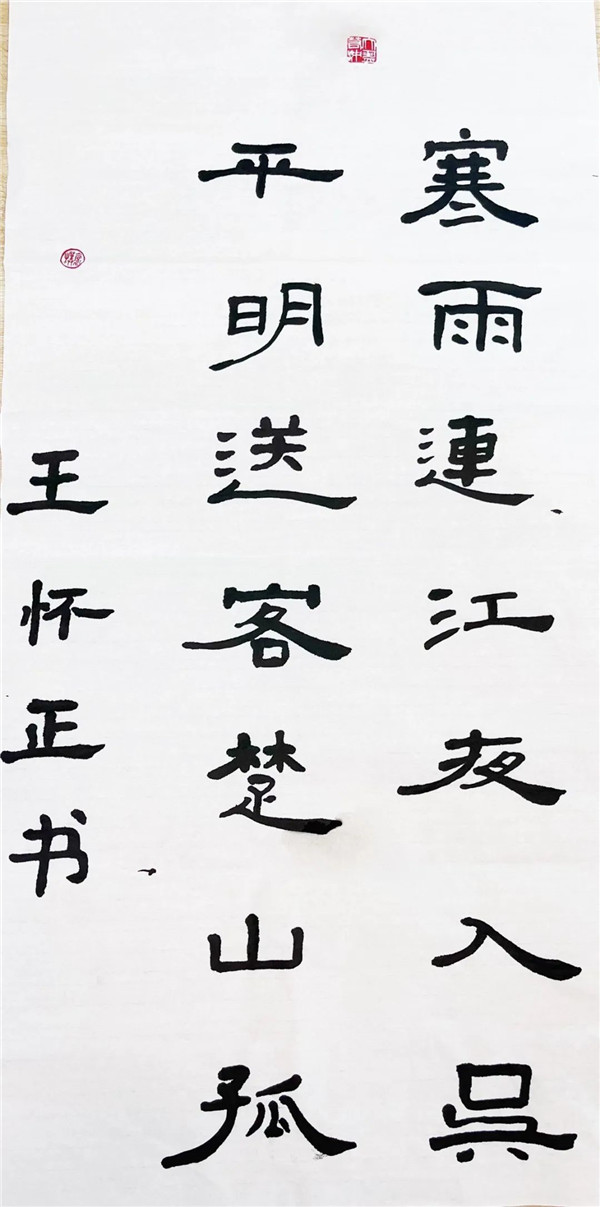 寒雨連江夜入吳
平明送客楚山孤
王怀正书